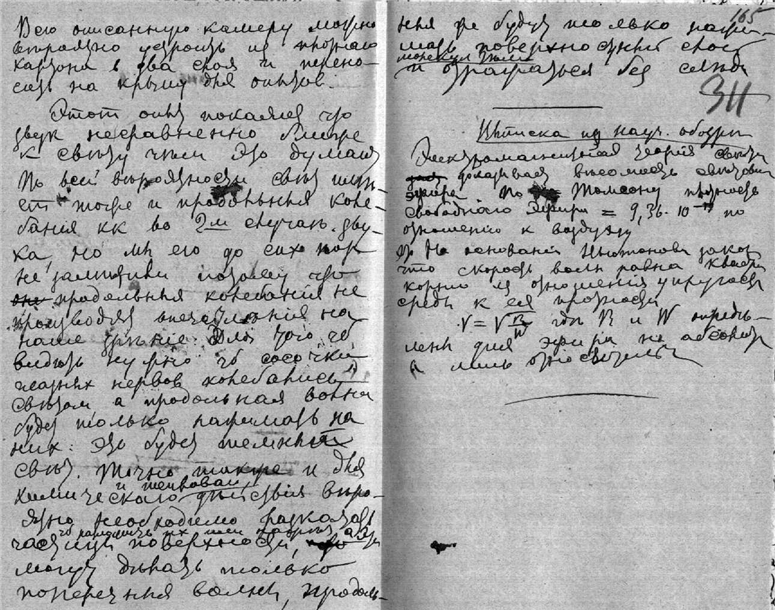 Всю описанную камеру можно
вероятно устроить из простаго
картона в два слоя и перено-
сить на крышу для опытов.
Этот опыт показал что
звук несравненно ближе
к свету чем это думали
По всей вероятности свет имѣ-
ет тоже и продольныя коле-
бания кк во 2м случаѣ зву-
ка, но мы его до сих пор
не замѣтили потому что
продольныя колебания не
производят впечатления на
наше зрѣние. Для того чб
видѣть нужно чб сосочки
нервов колебались
свѣтом а продольная волна
будет только нажимать на
них. Это будет темный
свѣт. Точно также и для
и теплового
химическаго дѣйствия вѣро-
ятно необходимо раскачать
частицы поверхности, а это
могут дѣлать только
поперечныя волны, продоль-
165
ныя же будут только нажи-
мать поверхностный слой
и отражаться без следа
311
Выписка из науч. обозрѣн
Электромагнитная теория свѣта
доказывает вѣсомость свѣтового
эфира. По Томсону плотность
свободного Эфира = 9,36·10⁻¹⁹ по
отношению к воздуху,
На основании Ньютонова закона
что скорость волн равна квадр
корню из отношения упругости
среды к ея плотности
V = √B/W где B и W опредѣ-
лены для эфира не абсолют
а лишь относительно